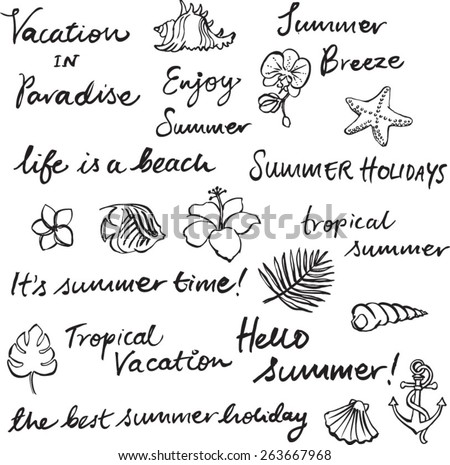 Vacation
in
Paradise
Enjoy
Summer
Summer
Breeze
life is a beach
Summer Holidays
tropical
summer
It's summer time!
Tropical
Vacation
Hello
summer!
the best summer holiday
shutterstock
www.shutterstock.com · 263667968